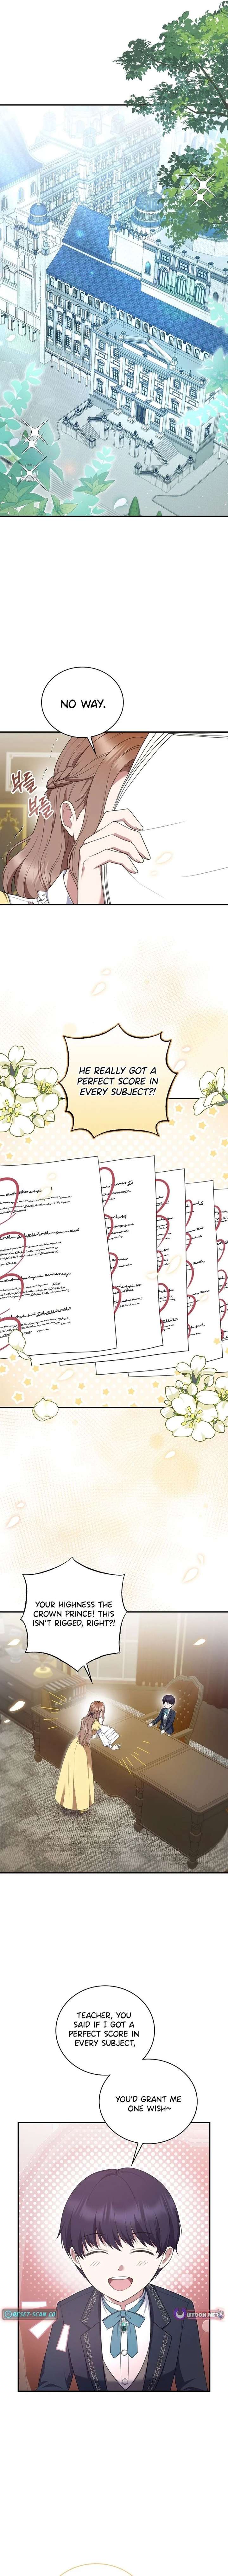 NO WAY.
부들
부들
HE REALLY GOT A
PERFECT SCORE IN
EVERY SUBJECT?!
YOUR HIGHNESS THE
CROWN PRINCE! THIS
ISN'T RIGGED, RIGHT?!
TEACHER, YOU
SAID IF I GOT A
PERFECT SCORE IN
EVERY SUBJECT,
YOU'D GRANT ME
ONE WISH~
RESET-SCAN.CO
UTOON.NET